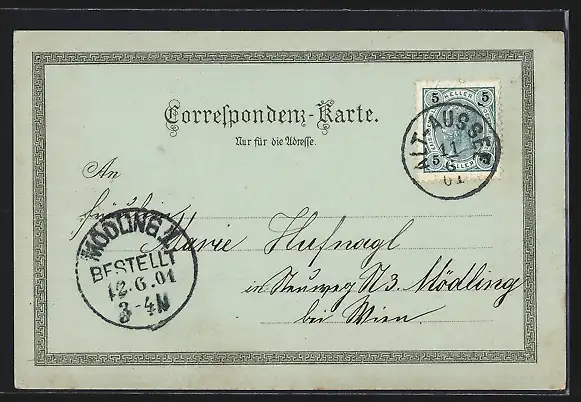 Correspondenz-Karte.
Nur für die Adresse.
5 HELLER 5
5 HELLER 5
ALT-AUSSEE
11
6
01
An
Fräulein
Marie Hufnagl
in Neuweg N 3. Mödling
bei Wien.
MÖDLING
BESTELLT
12.6.01
3-4N